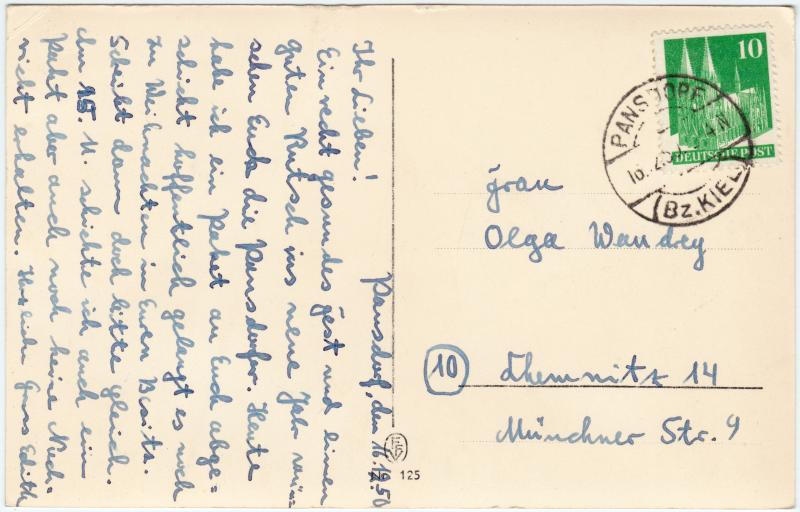 Pansdorf, den 16.12.50
Ihr Lieben!
Ein recht gesundes Fest und einen
guten Rutsch ins neue Jahr wün=
schen Euch die Pansdorfer. Heute
habe ich ein Paket an Euch abge=
schickt hoffentlich gelangt es noch
zu Weihnachten in Euren Besitz.
Schreibt dann doch bitte gleich.
Am 15. 11. schickte ich auch ein
Paket aber auch noch keine Nach-
richt erhalten. Herzliche Grüsse Edith
10
DEUTSCHE POST
PANSDORF
16.12.
(Bz. KIEL)
Frau
Olga Wandrey
10 Chemnitz 14
Münchner Str. 9
125